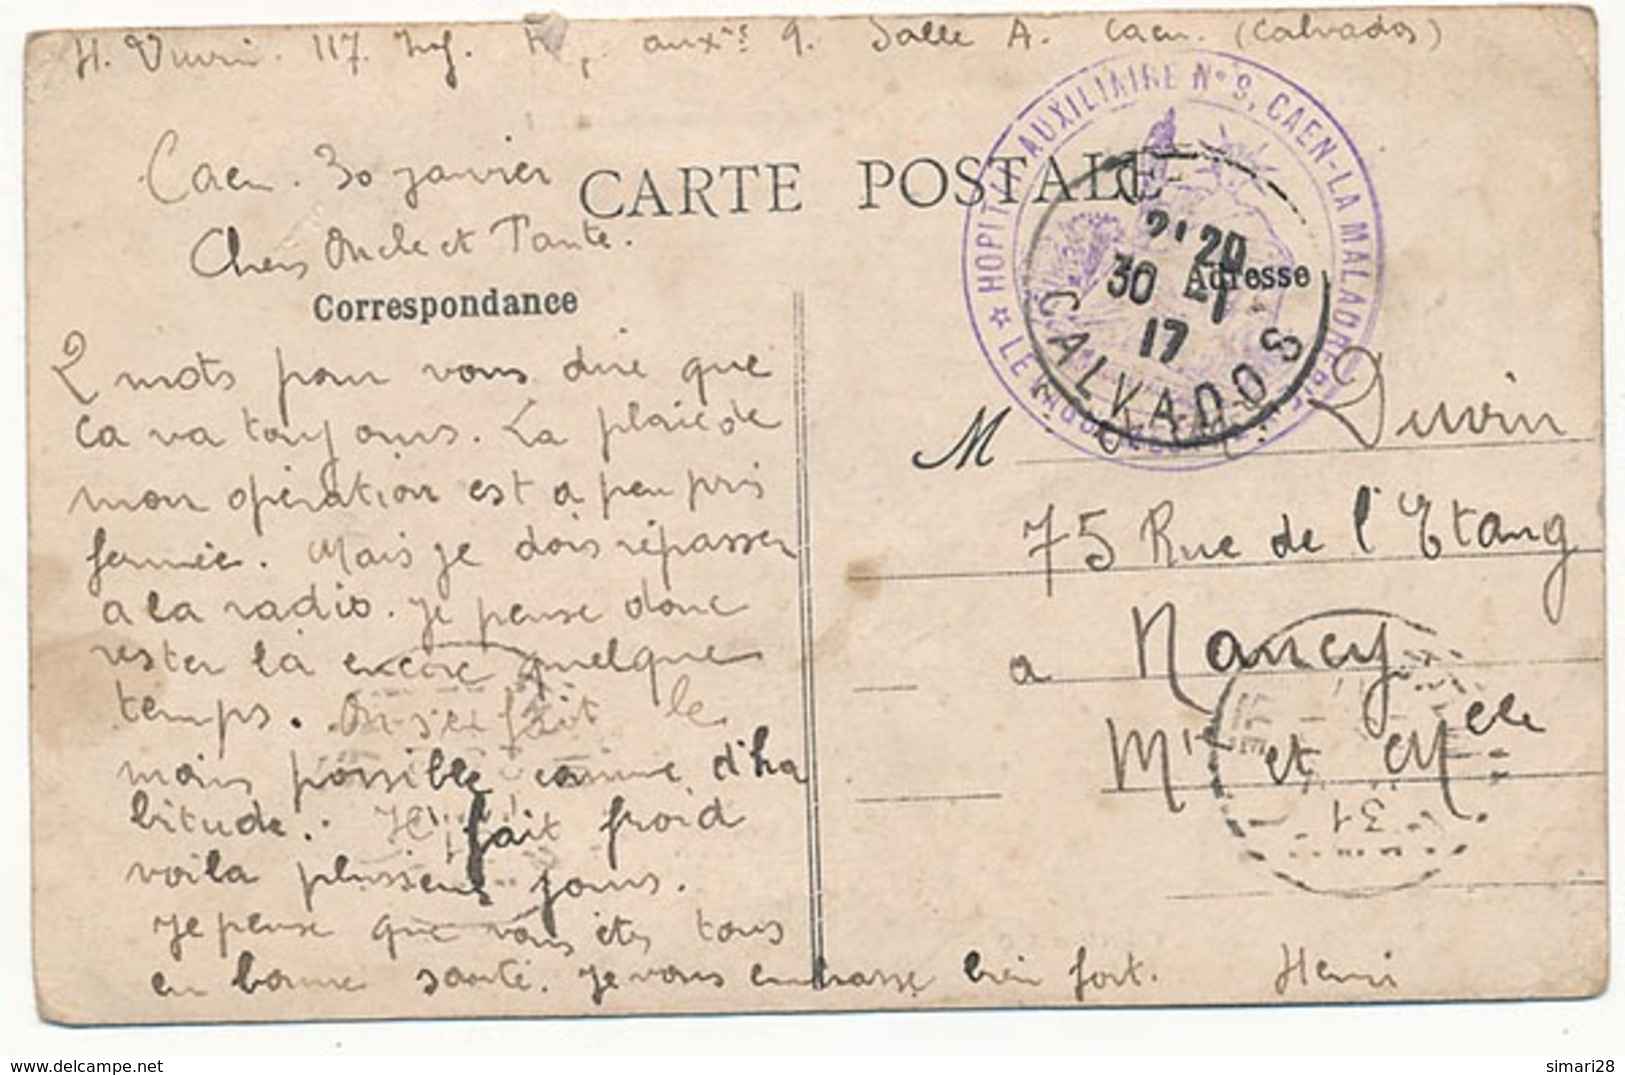 H. Duvrin. 117. Inf. auxre 9. Salle A. Caen. (Calvados)
HOPITAL AUXILIAIRE N° 9, CAEN-LA MALADRERIE
Caen. 30 janvier
CARTE POSTALE
Chers Oncle et Tante.
Correspondance
Adresse
2' 20
30 -1
17
CALVADOS
2 mots pour vous dire que
ca va toujours. La plaie de
mon opération est a peu près
fermée. Mais je dois répasser
a la radio. Je pense donc
rester là encore quelque
temps. On s'en fait le
moins possible comme d'ha
bitude. Il fait froid
voila plusieurs jours.
Je pense que vous êtes tous
en bonne santé. Je vous embrasse bien fort. Henri
M Duvrin
75 Rue de l'Etang
a Nancy
Mr et Melle
31
delcampe.net
simari28